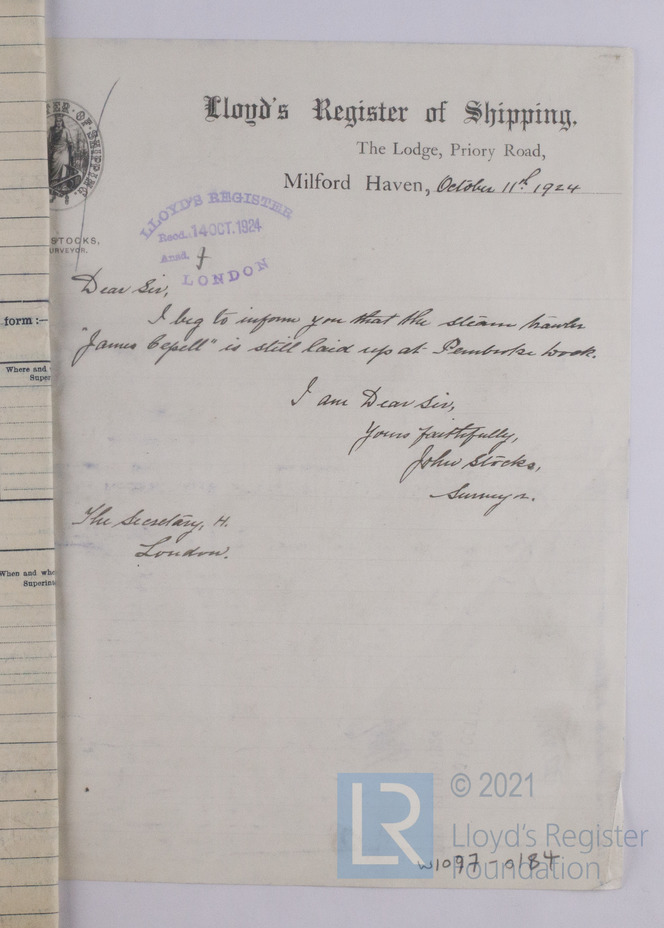 TER·OF·SHIPPING
STOCKS,
URVEYOR.
Lloyd's Register of Shipping,
The Lodge, Priory Road,
Milford Haven, October 11th 1924
LLOYD'S REGISTER
Recd. 14 OCT. 1924
Ansd.
LONDON
Dear Sir,
I beg to inform you that the steam trawler
"James Cepell" is still laid up at Pembroke Dock.
I am Dear Sir,
Yours faithfully,
John Stocks,
Surveyor.
The Secretary, H.
London.
form :—
Where and
Super
When and whe
Superin
LR
© 2021
Lloyd's Register
Foundation
W1097-0184